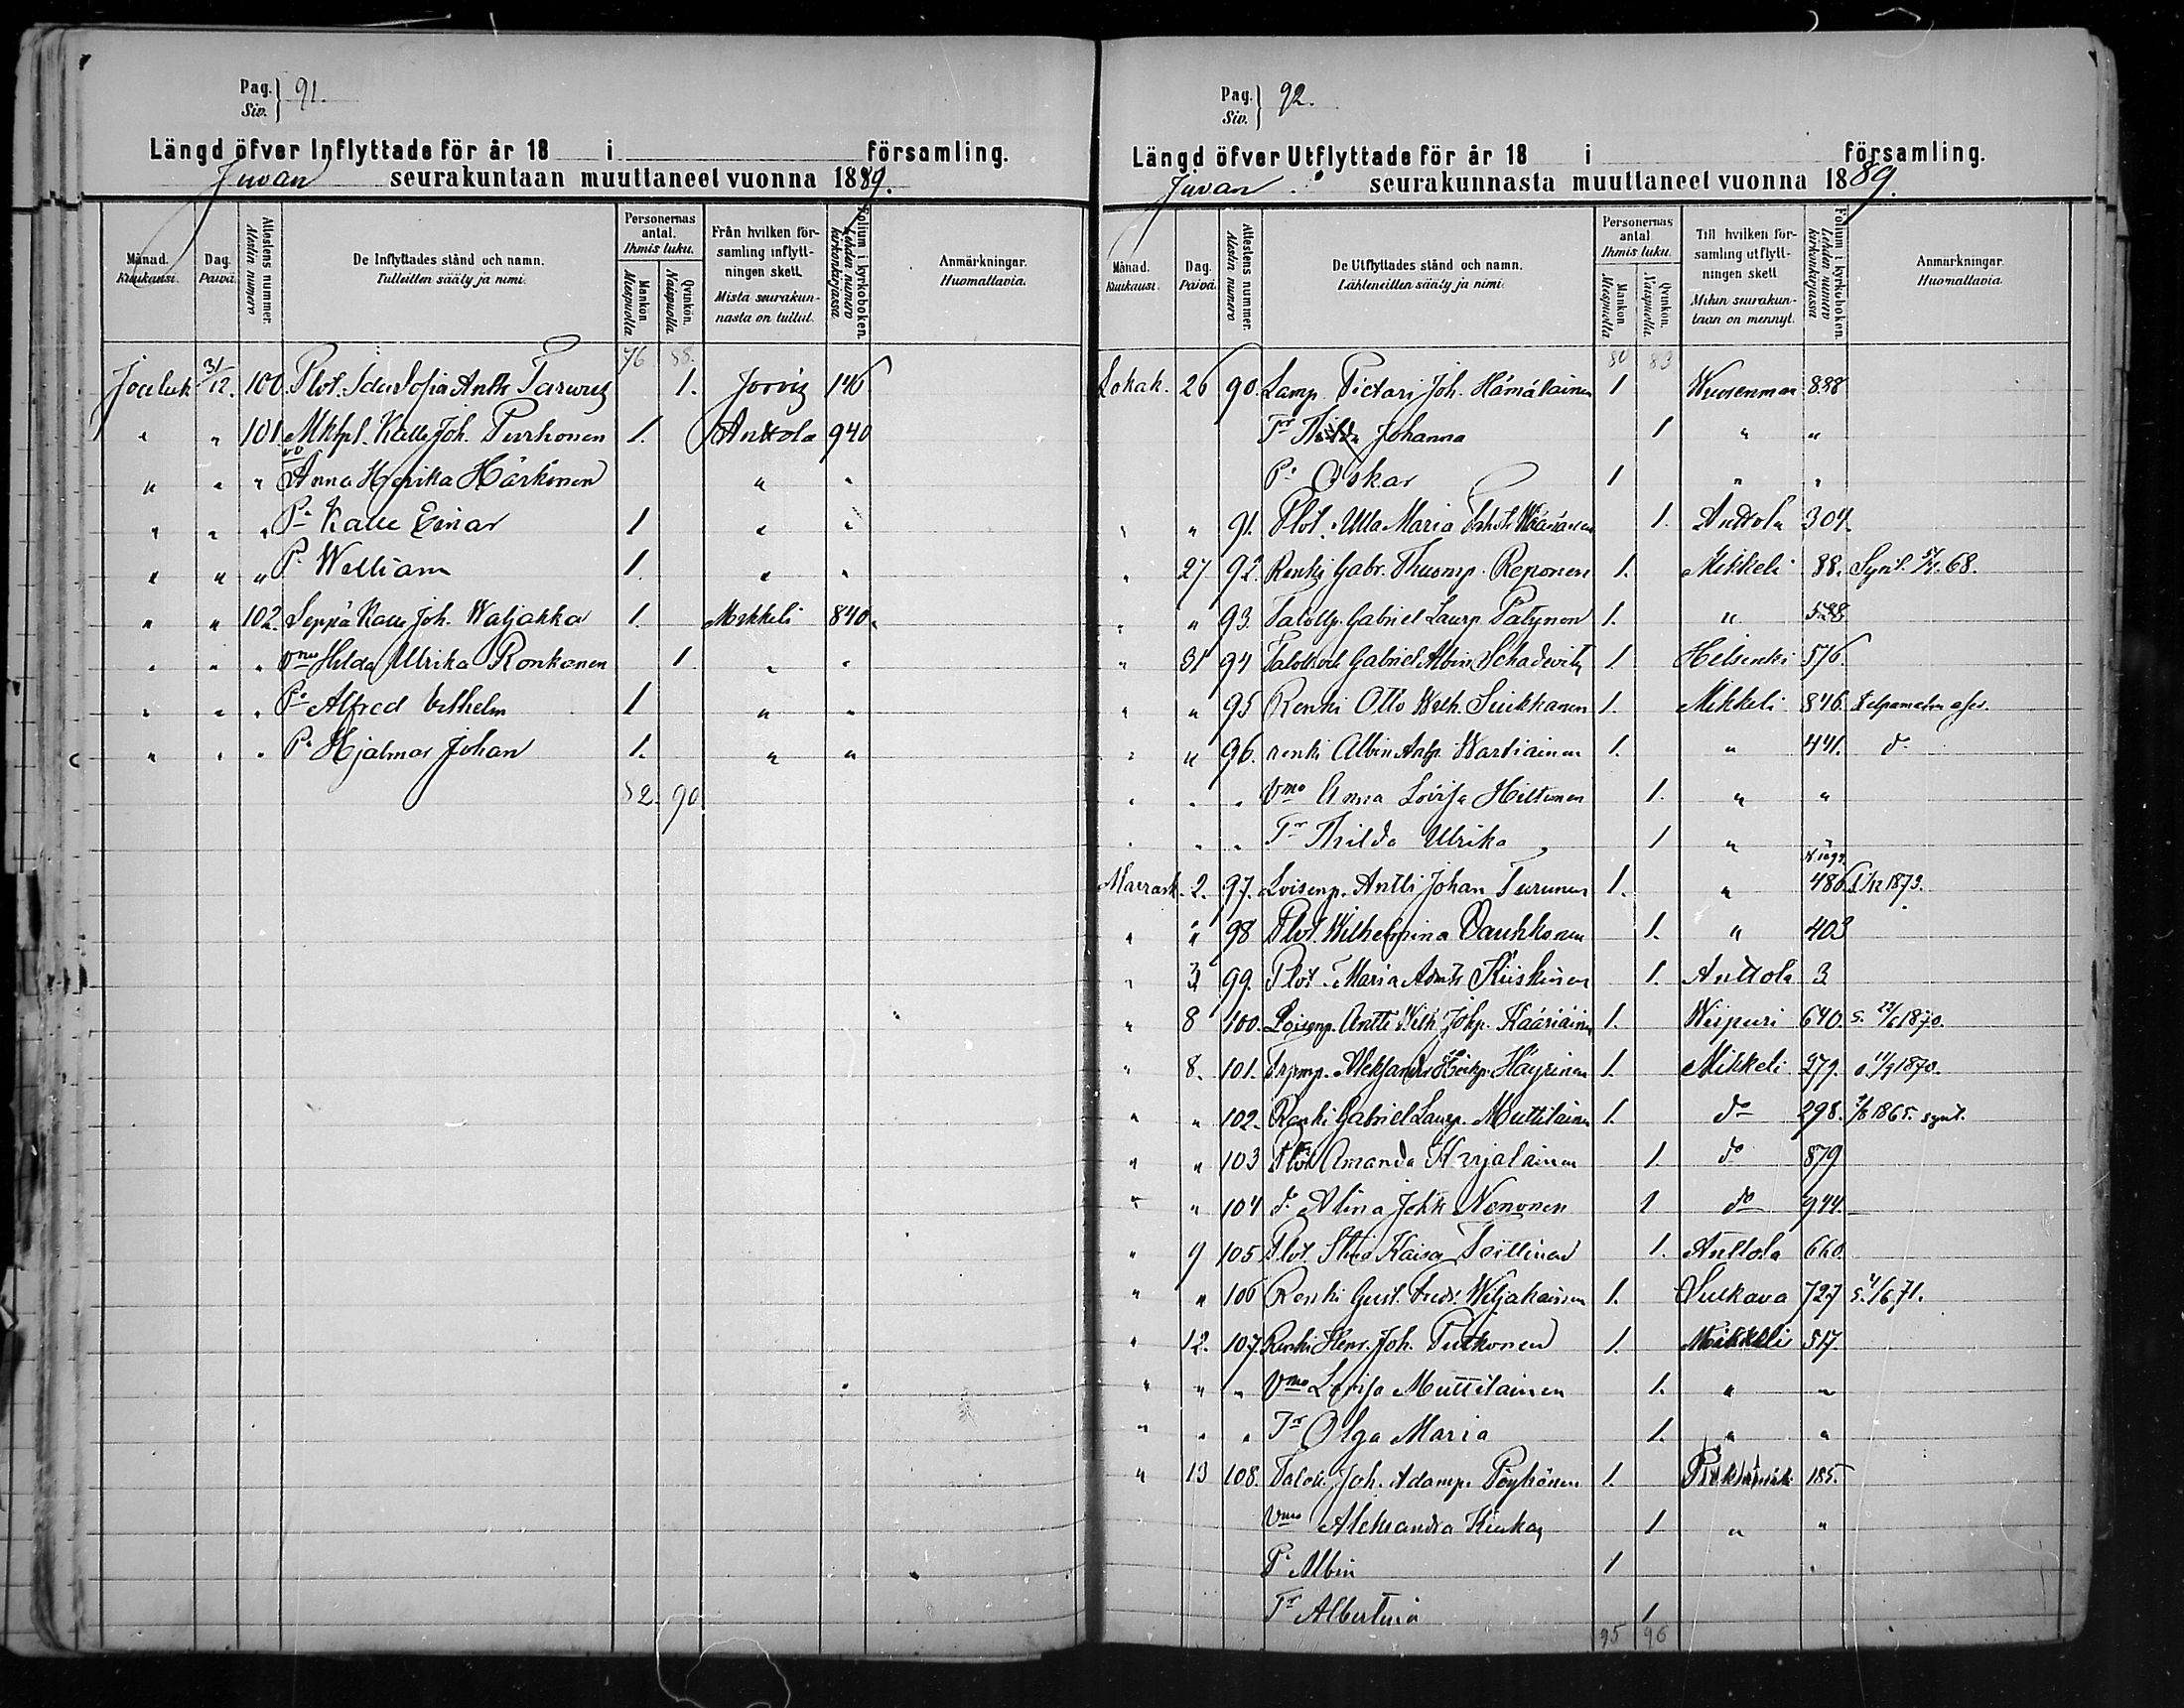 Pag. Siv. } 91.
Längd öfver Inflyttade för år 18 i församling.
Juvan seurakuntaan muuttaneet vuonna 1889.
Månad. Kuukausi.
Dag. Päivä.
Attestens nummer. Atestin numero
De Inflyttades stånd och namn. Tulleitten sääty ja nimi.
Personernas antal. Ihmis luku.
Mankön Miespuolta
Qvinkön. Naispuolta
Från hvilken församling inflyttningen skett. Mistä seurakunnasta on tullut.
Folium i kyrkoboken. Lehden numero kirkonkirjassa
Anmärkningar. Huomattavia.
76 88.
Jouluk 31/12. 100. Plot. Ida Sofia Antt. 1. Jorois 146
" " 101. Mktpl. Kalle Joh. Purhonen 1. Anttola 940
" " " Anna Henrika Härkönen " "
" " " P. Kalle Einar 1 " "
" " " P. William 1. " "
" " 102. Seppä Kalle Joh. Waljakka 1. Mikkeli 840.
" " " Vmo Hilda Ulrika Ronkanen 1. " "
" " " P. Alfred Vilhelm 1 " "
" " " P. Hjalmar Johan 1. " "
82. 90
Pag. Siv. } 92.
Längd öfver Utflyttade för år 18 i församling.
Juvan seurakunnasta muuttaneet vuonna 1889.
Månad. Kuukausi.
Dag. Päivä.
Attestens nummer. Atestin numero
De Utflyttades stånd och namn. Lähteneitten sääty ja nimi.
Personernas antal Ihmis luku.
Mankön Miespuolta
Qvinkön. Naispuolta
Till hvilken församling utflyttningen skett Mihin seurakuntaan on mennyt.
Folium i kyrkoboken. Lehden numero kirkonkirjassa
Anmärkningar Huomattavia
80 83
Lokak. 26 90. Lamp. Pietari Joh. Hämäläinen 1 888
Tr Hilda Johanna 1 " "
P. Oskar 1 " "
" " 91. Plot. Ulla Maria Wäänänen 1. Anttola 304.
" 27 92. Renki Gabr. Thuomp. Reponen 1. Mikkeli 88. Synt. 68.
" " 93. Gabriel Laurp. Patynen 1. " 588
" 31 94 Gabriel Albin Schadevitz 1. Helsinki 576
" " 95 Renki Otto Wilh. Suikkanen 1. Mikkeli 846.
" " 96. renki Albin Antp. Wartiainen 1. " 441. do
" " " Vmo Anna Lovisa Hiltunen 1. " "
" " " Tr Hilda Ulrika 1 " "
Marrask. 2. 97. Loisenp. Antti Johan Turunen 1. " 486 1873.
" " 98 Plot. Wilhelmina Vauhkonen 1. " 403
" 3 99. Plot. Maria Kiiskinen 1. Anttola 3
" 8 100. Loisenp. Antti Wilh. Johp. Kääriäinen 1. Wiipuri 640. s. 22/6 1870.
" 8. 101. Aleksander Heikp. Häyrinen 1. Mikkeli 279. 11/9 1870.
" " 102. Renki Gabriel Laurp. Muttilainen 1. do 298. 1865. synt.
" " 103 Plot Amanda Karjalainen 1. do 879
" " 104 do Alina Johtr Nenonen 1 do 944.
" 9 105 Plot. Stina Kaisa 1. Anttola 660.
" " 106 Renki Gust. Fredr. Wiljakainen 1. Sulkava 727 s. 4/6 71.
" 12. 107. Renki Henr. Joh. Putkonen 1. Mikkeli 517.
" " " Vmo Lovisa Muttilainen 1. " "
" " " Tr Olga Maria 1. " "
" 13 108. Joh. Adamp. Pöyhönen 1. Pieksämäki 185.
Vmo Aleksandra 1 " "
P. Albin 1 "
Tr Albertina 1
95 96